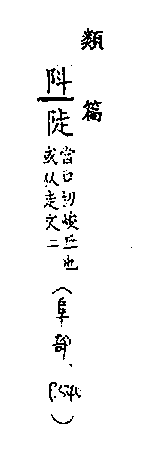 類篇
阧陡
當口切峻立也
或从走文二
（阜部、）